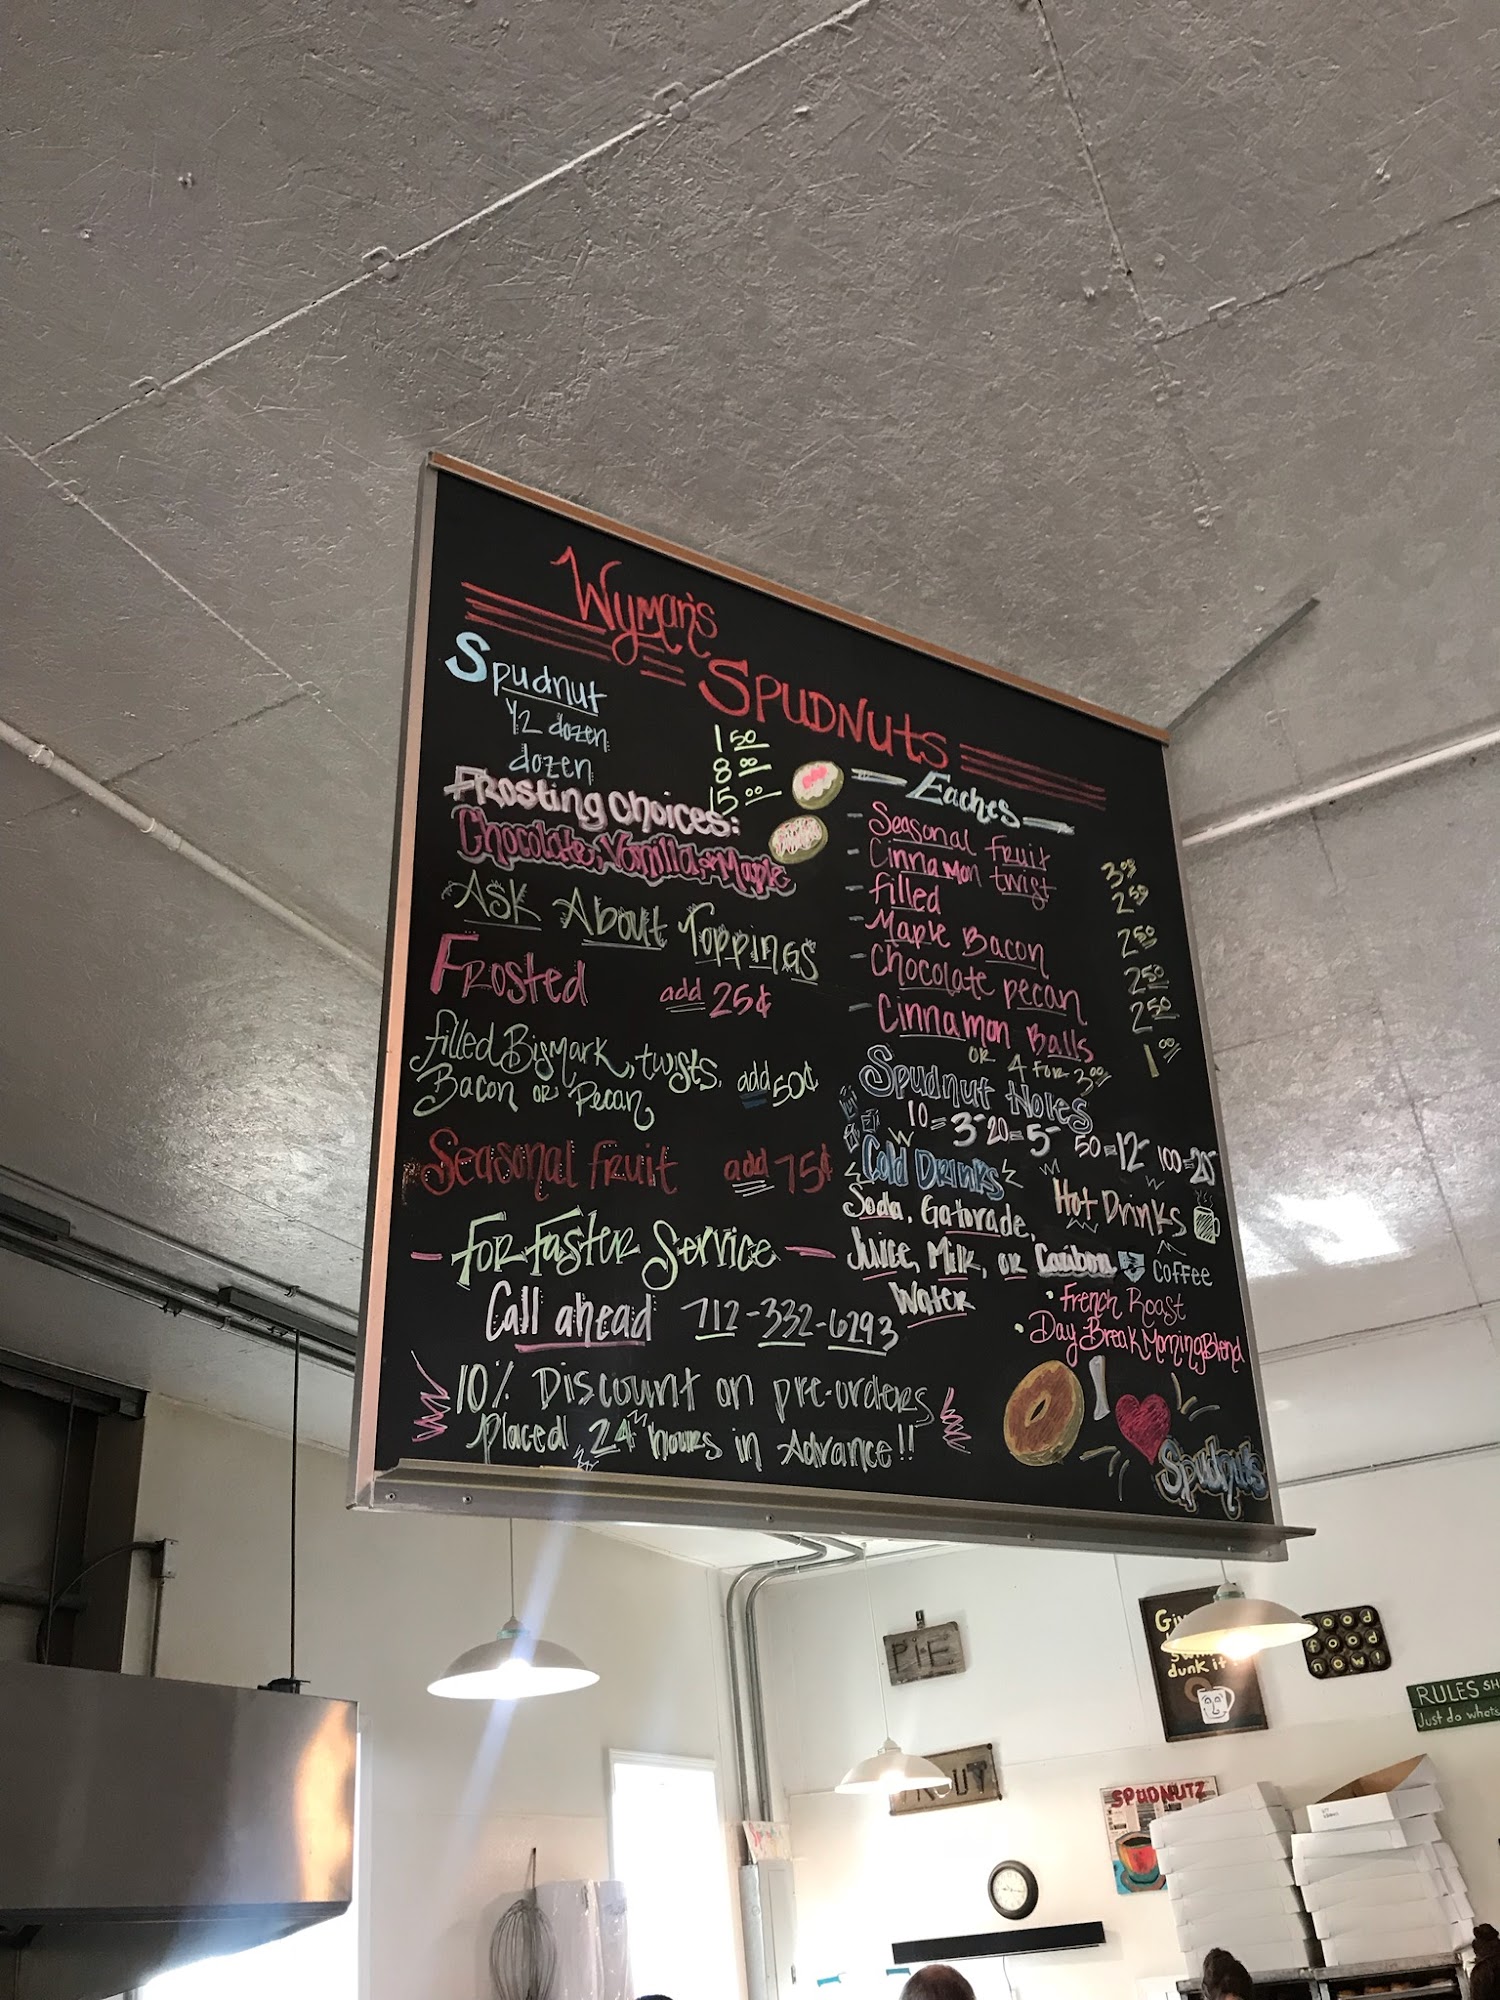 Wyman's
SPUDNUTS
Spudnut 1 50
1/2 dozen 8 00
dozen 15 00
Frosting Choices:
Chocolate, Vanilla, or Maple
ASK About Toppings
Frosted add 25¢
filled Bismark, twists,
Bacon or Pecan add 50¢
Seasonal Fruit add 75¢
- For Faster Service -
Call ahead 712-332-6293
10% Discount on pre-orders
placed 24 hours in Advance!!
Eaches
- Seasonal Fruit 3 00
- Cinnamon twist 2 50
- filled 2 50
- Maple Bacon 2 50
- Chocolate pecan 2 50
- Cinnamon Balls 1 00
or 4 for 3 00
Spudnut Holes
10=3- 20=5- 50=12- 100=20-
Cold Drinks
Soda, Gatorade,
Juice, Milk, or
Water
Hot Drinks
Caribou Coffee
• French Roast
• DayBreak Morning Blend
I
Spudnuts
PIE
dunk it
good
food
now!
RULES
Just do
SPUDNUTZ